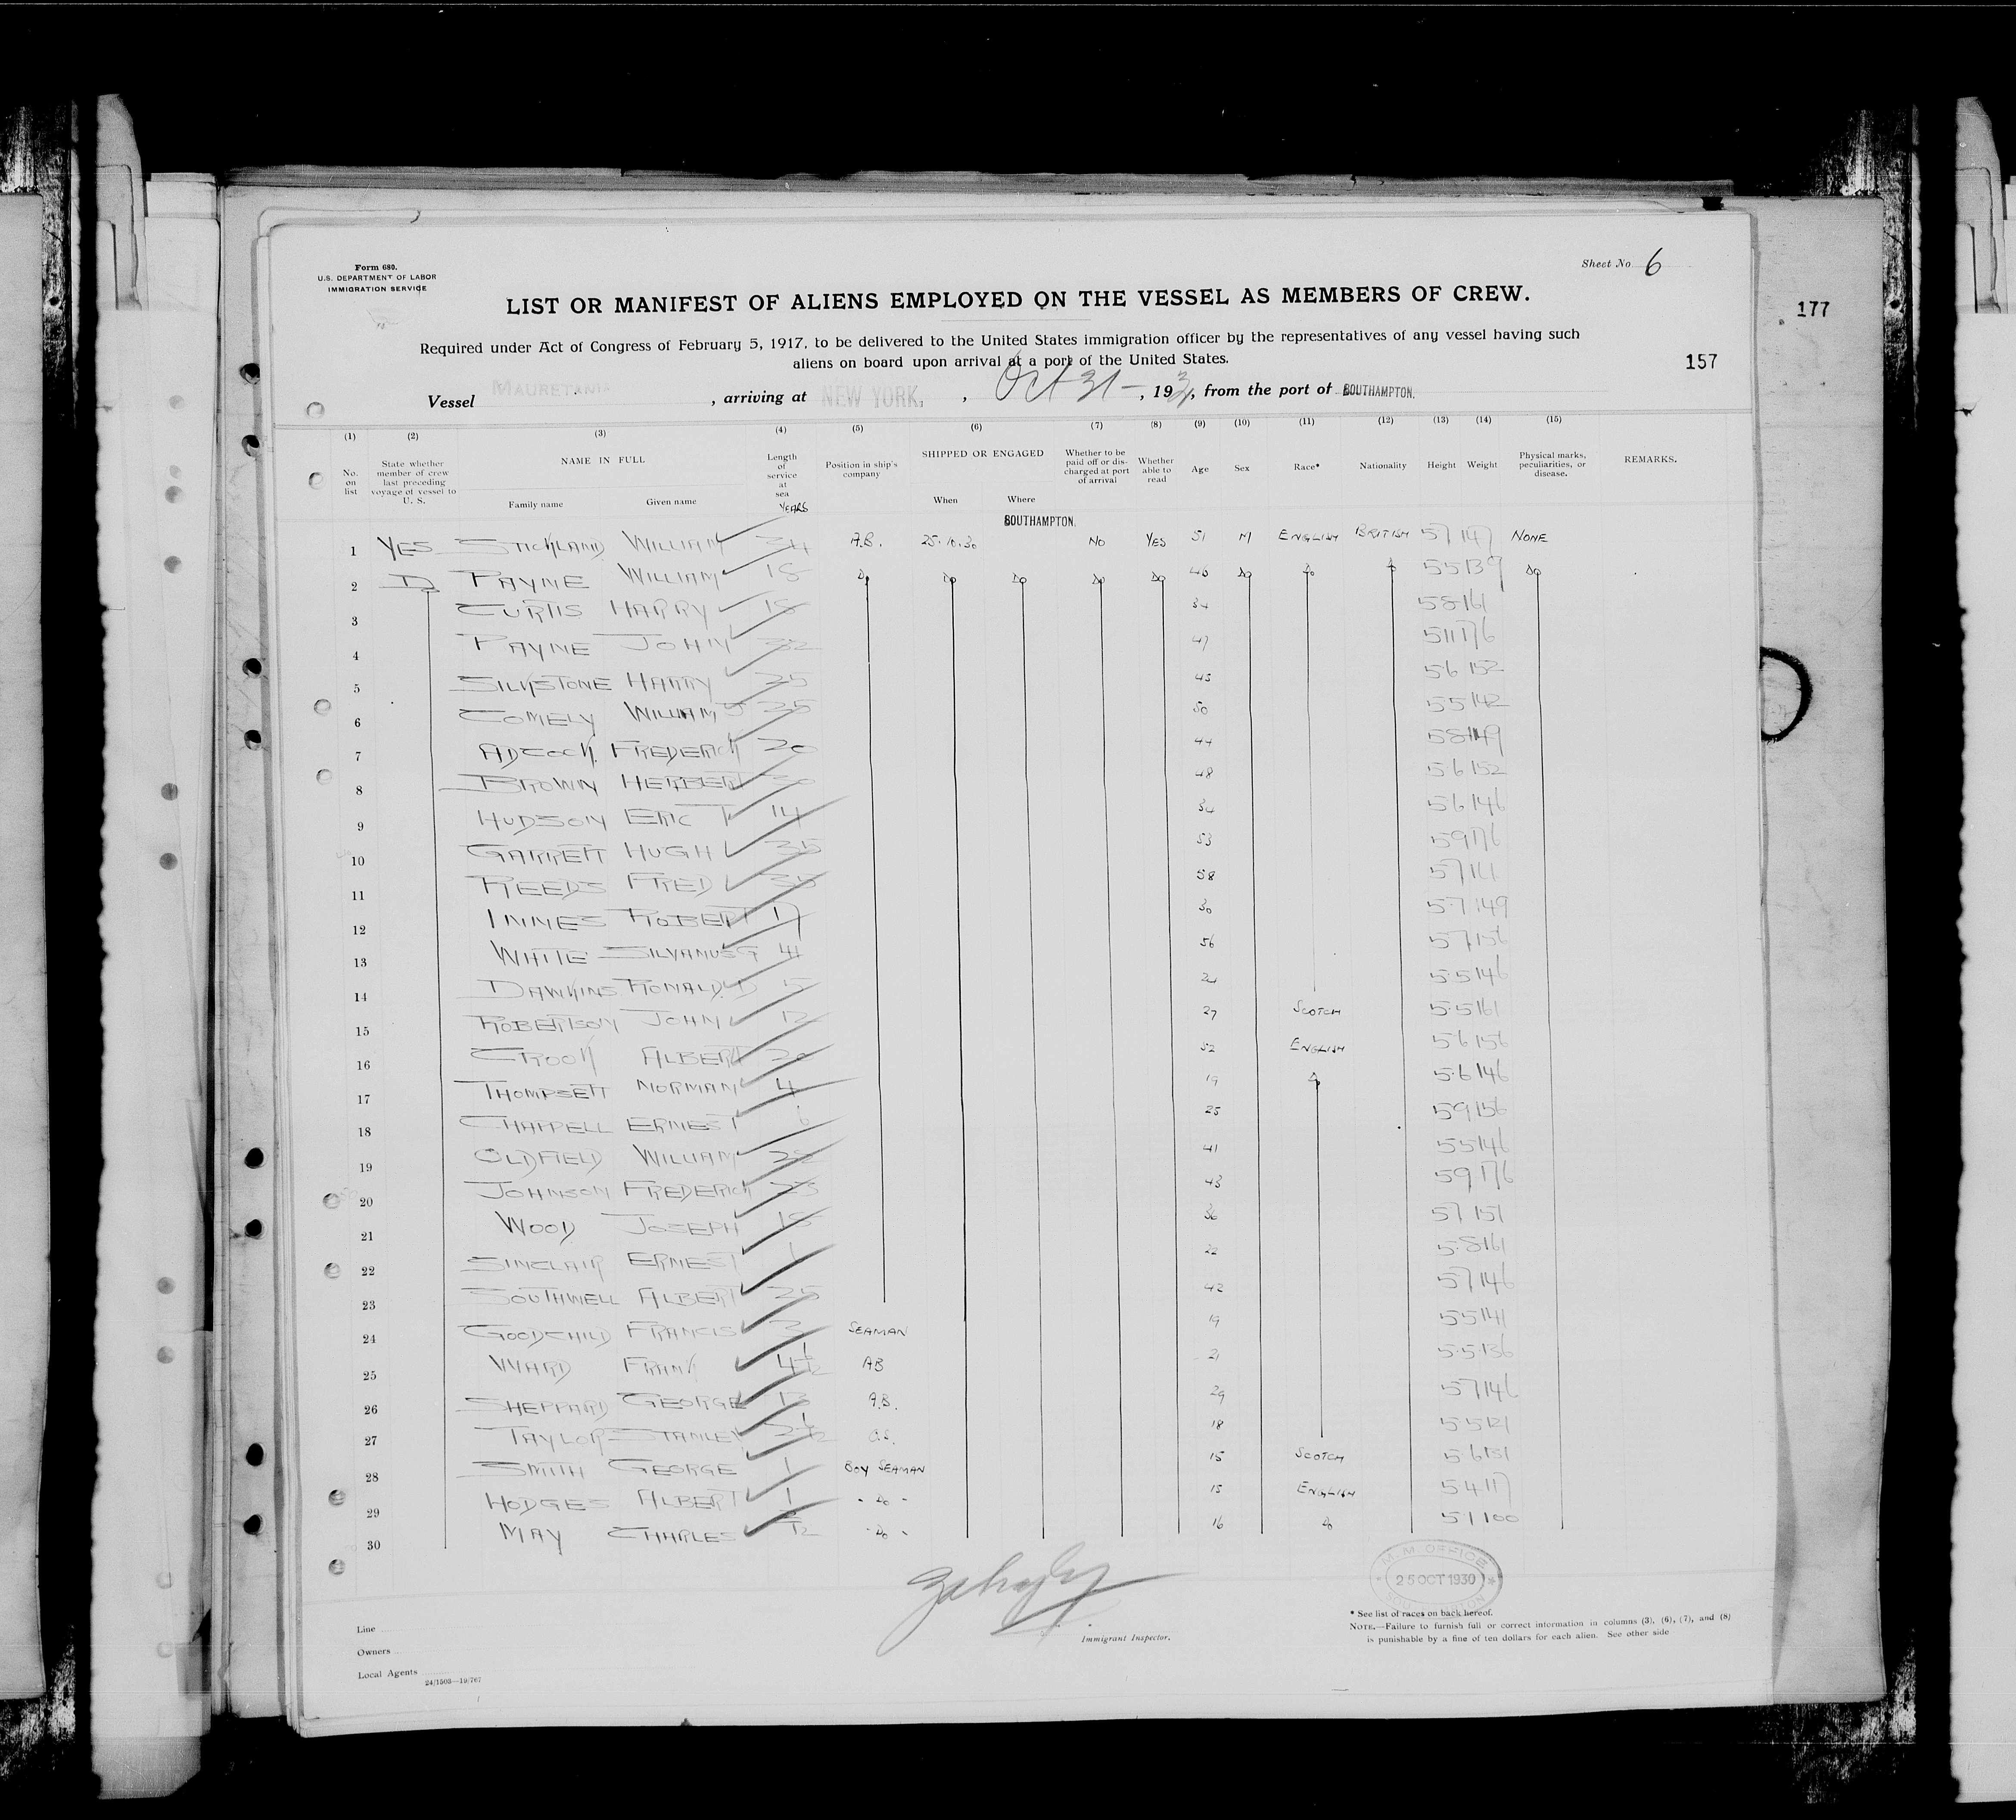 Form 680.
U.S. DEPARTMENT OF LABOR
IMMIGRATION SERVICE
Sheet No. 6
LIST OR MANIFEST OF ALIENS EMPLOYED ON THE VESSEL AS MEMBERS OF CREW.
177
Required under Act of Congress of February 5, 1917, to be delivered to the United States immigration officer by the representatives of any vessel having such
aliens on board upon arrival at a port of the United States.
157
Vessel MAURETANIA, arriving at NEW YORK, Oct 31 -, 193, from the port of SOUTHAMPTON.
(1) (2) (3) (4) (5) (6) (7) (8) (9) (10) (11) (12) (13) (14) (15)
No. on list State whether member of crew last preceding voyage of vessel to U. S. NAME IN FULL Family name Given name Length of service at sea YEARS Position in ship's company SHIPPED OR ENGAGED When Where Whether to be paid off or discharged at port of arrival Whether able to read Age Sex Race* Nationality Height Weight Physical marks, peculiarities, or disease. REMARKS.
SOUTHAMPTON.
1 YES STICKLAND WILLIAM 34 A.B. 25.10.30 NO YES 51 M ENGLISH BRITISH 57 147 NONE
2 Do PAYNE WILLIAM 18 Do Do Do Do Do 40 Do Do Do 55 139 Do
3 CURTIS HARRY 18 34 58 161
4 PAYNE JOHN 32 47 511 176
5 SILKSTONE HARRY 25 45 56 152
6 COMELY WILLIAM J 35 50 55 142
7 ADCOCK FREDERICK 20 44 58 149
8 BROWN HERBERT 30 48 56 152
9 HUDSON ERIC T 14 34 56 146
10 GARRETT HUGH 35 53 59 176
11 REEDS FRED 58 57
12 INNES ROBERT 17 30 57 149
13 WHITE SILVANUS G 41 56 57 156
14 DAWKINS RONALD D 5 21 55 146
15 ROBERTSON JOHN 12 27 SCOTCH 55 161
16 CROOK ALBERT 20 52 ENGLISH 56 156
17 THOMPSETT NORMAN 4 19 Do 56 146
18 CHAPPELL ERNEST 6 25 59 156
19 OLDFIELD WILLIAM 41 55 146
20 JOHNSON FREDERICK 25 43 59 176
21 WOOD JOSEPH 18 36 57 151
22 SINCLAIR ERNEST 1 22 58 161
23 SOUTHWELL ALBERT 25 42 57 146
24 GOODCHILD FRANCIS 3 SEAMAN 19 55 141
25 WARD FRANK 4½ AB 21 55 136
26 SHEPPARD GEORGE 13 A.B. 29 57 146
27 TAYLOR STANLEY 2½ O.S. 18 55 121
28 SMITH GEORGE 1 BOY SEAMAN 15 SCOTCH 56 131
29 HODGES ALBERT 1 - Do - 15 ENGLISH 54 117
30 MAY CHARLES - Do - 16 Do 51 100
M.M. OFFICE
25 OCT 1930
Immigrant Inspector.
* See list of races on back hereof.
NOTE.—Failure to furnish full or correct information in columns (3), (6), (7), and (8)
is punishable by a fine of ten dollars for each alien. See other side
Line
Owners
Local Agents
24/1503—19/767